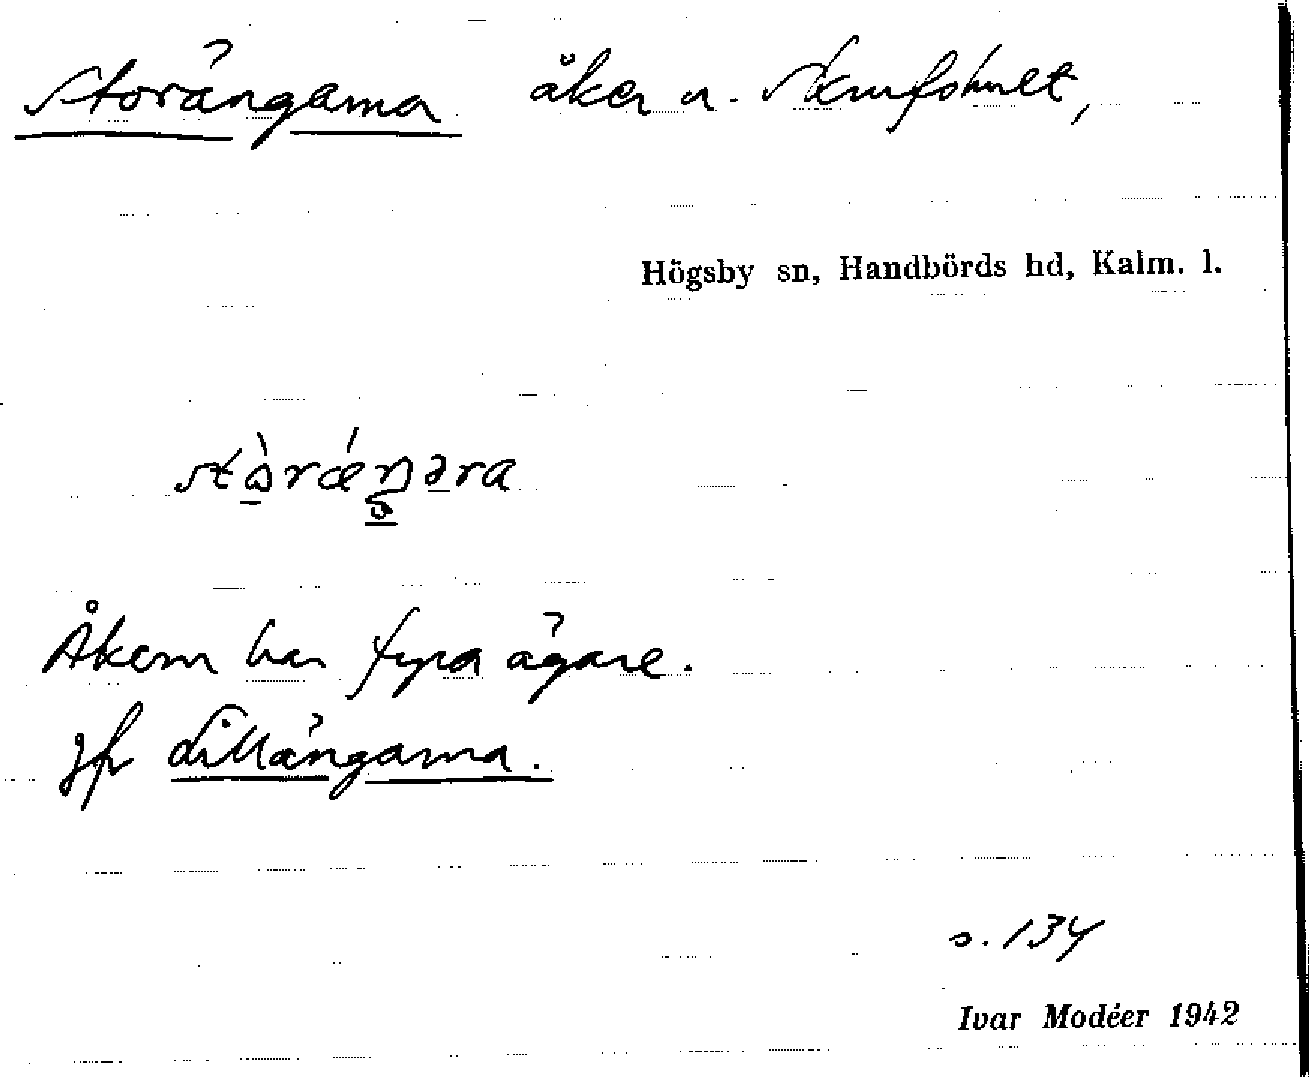 Storängarna åker u. Skrufshult,
Högsby sn, Handbörds hd, Kalm. l.
Åkern har fyra ägare.
Jfr Lillängarna.
s. 134
Ivar Modéer 1942